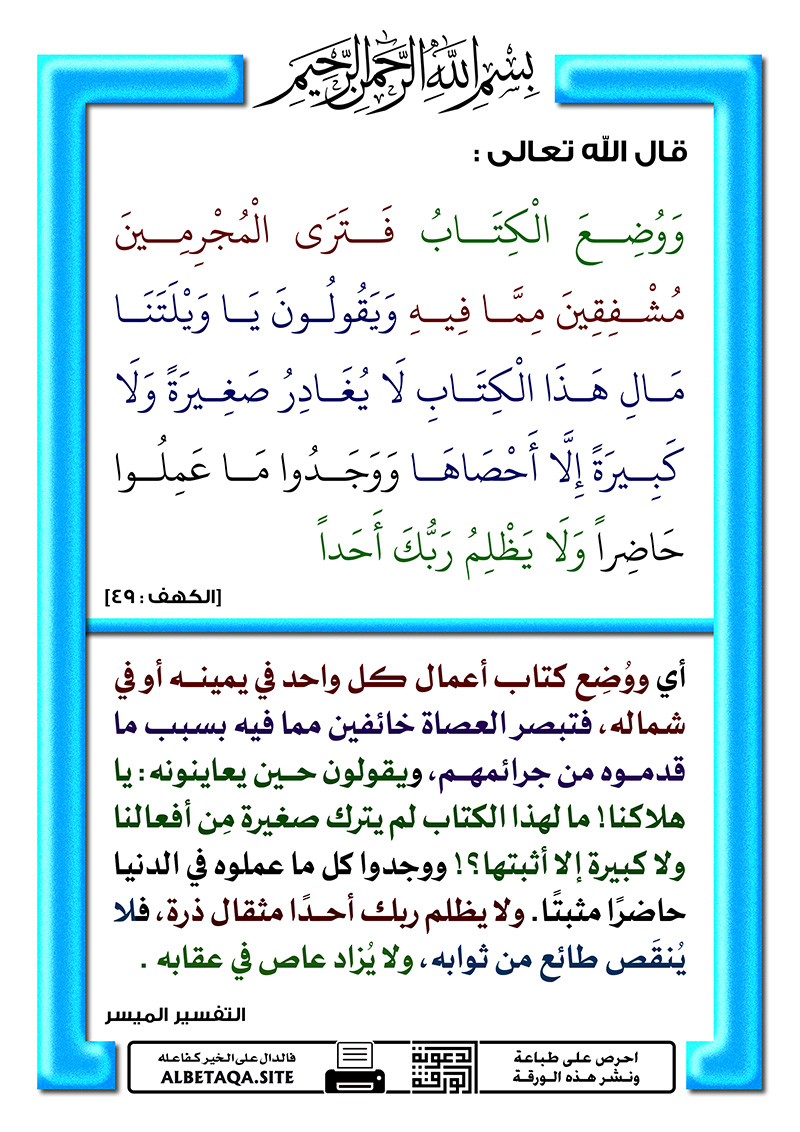 بِسْمِ اللَّهِ الرَّحْمَنِ الرَّحِيمِ
قال الله تعالى :
وَوُضِعَ الْكِتَابُ فَتَرَى الْمُجْرِمِينَ
مُشْفِقِينَ مِمَّا فِيهِ وَيَقُولُونَ يَا وَيْلَتَنَا
مَالِ هَذَا الْكِتَابِ لَا يُغَادِرُ صَغِيرَةً وَلَا
كَبِيرَةً إِلَّا أَحْصَاهَا وَوَجَدُوا مَا عَمِلُوا
حَاضِراً وَلَا يَظْلِمُ رَبُّكَ أَحَداً
[الكهف : ٤٩]
أي ووُضِع كتاب أعمال كل واحد في يمينه أو في
شماله، فتبصر العصاة خائفين مما فيه بسبب ما
قدموه من جرائمهم، ويقولون حين يعاينونه: يا
هلاكنا! ما لهذا الكتاب لم يترك صغيرة مِن أفعالنا
ولا كبيرة إلا أثبتها؟! ووجدوا كل ما عملوه في الدنيا
حاضرًا مثبتًا. ولا يظلم ربك أحدًا مثقال ذرة، فلا
يُنقَص طائع من ثوابه، ولا يُزاد عاص في عقابه .
التفسير الميسر
احرص على طباعة
ونشر هذه الورقة
الورقة الدعوية
فالدال على الخير كفاعله
ALBETAQA.SITE